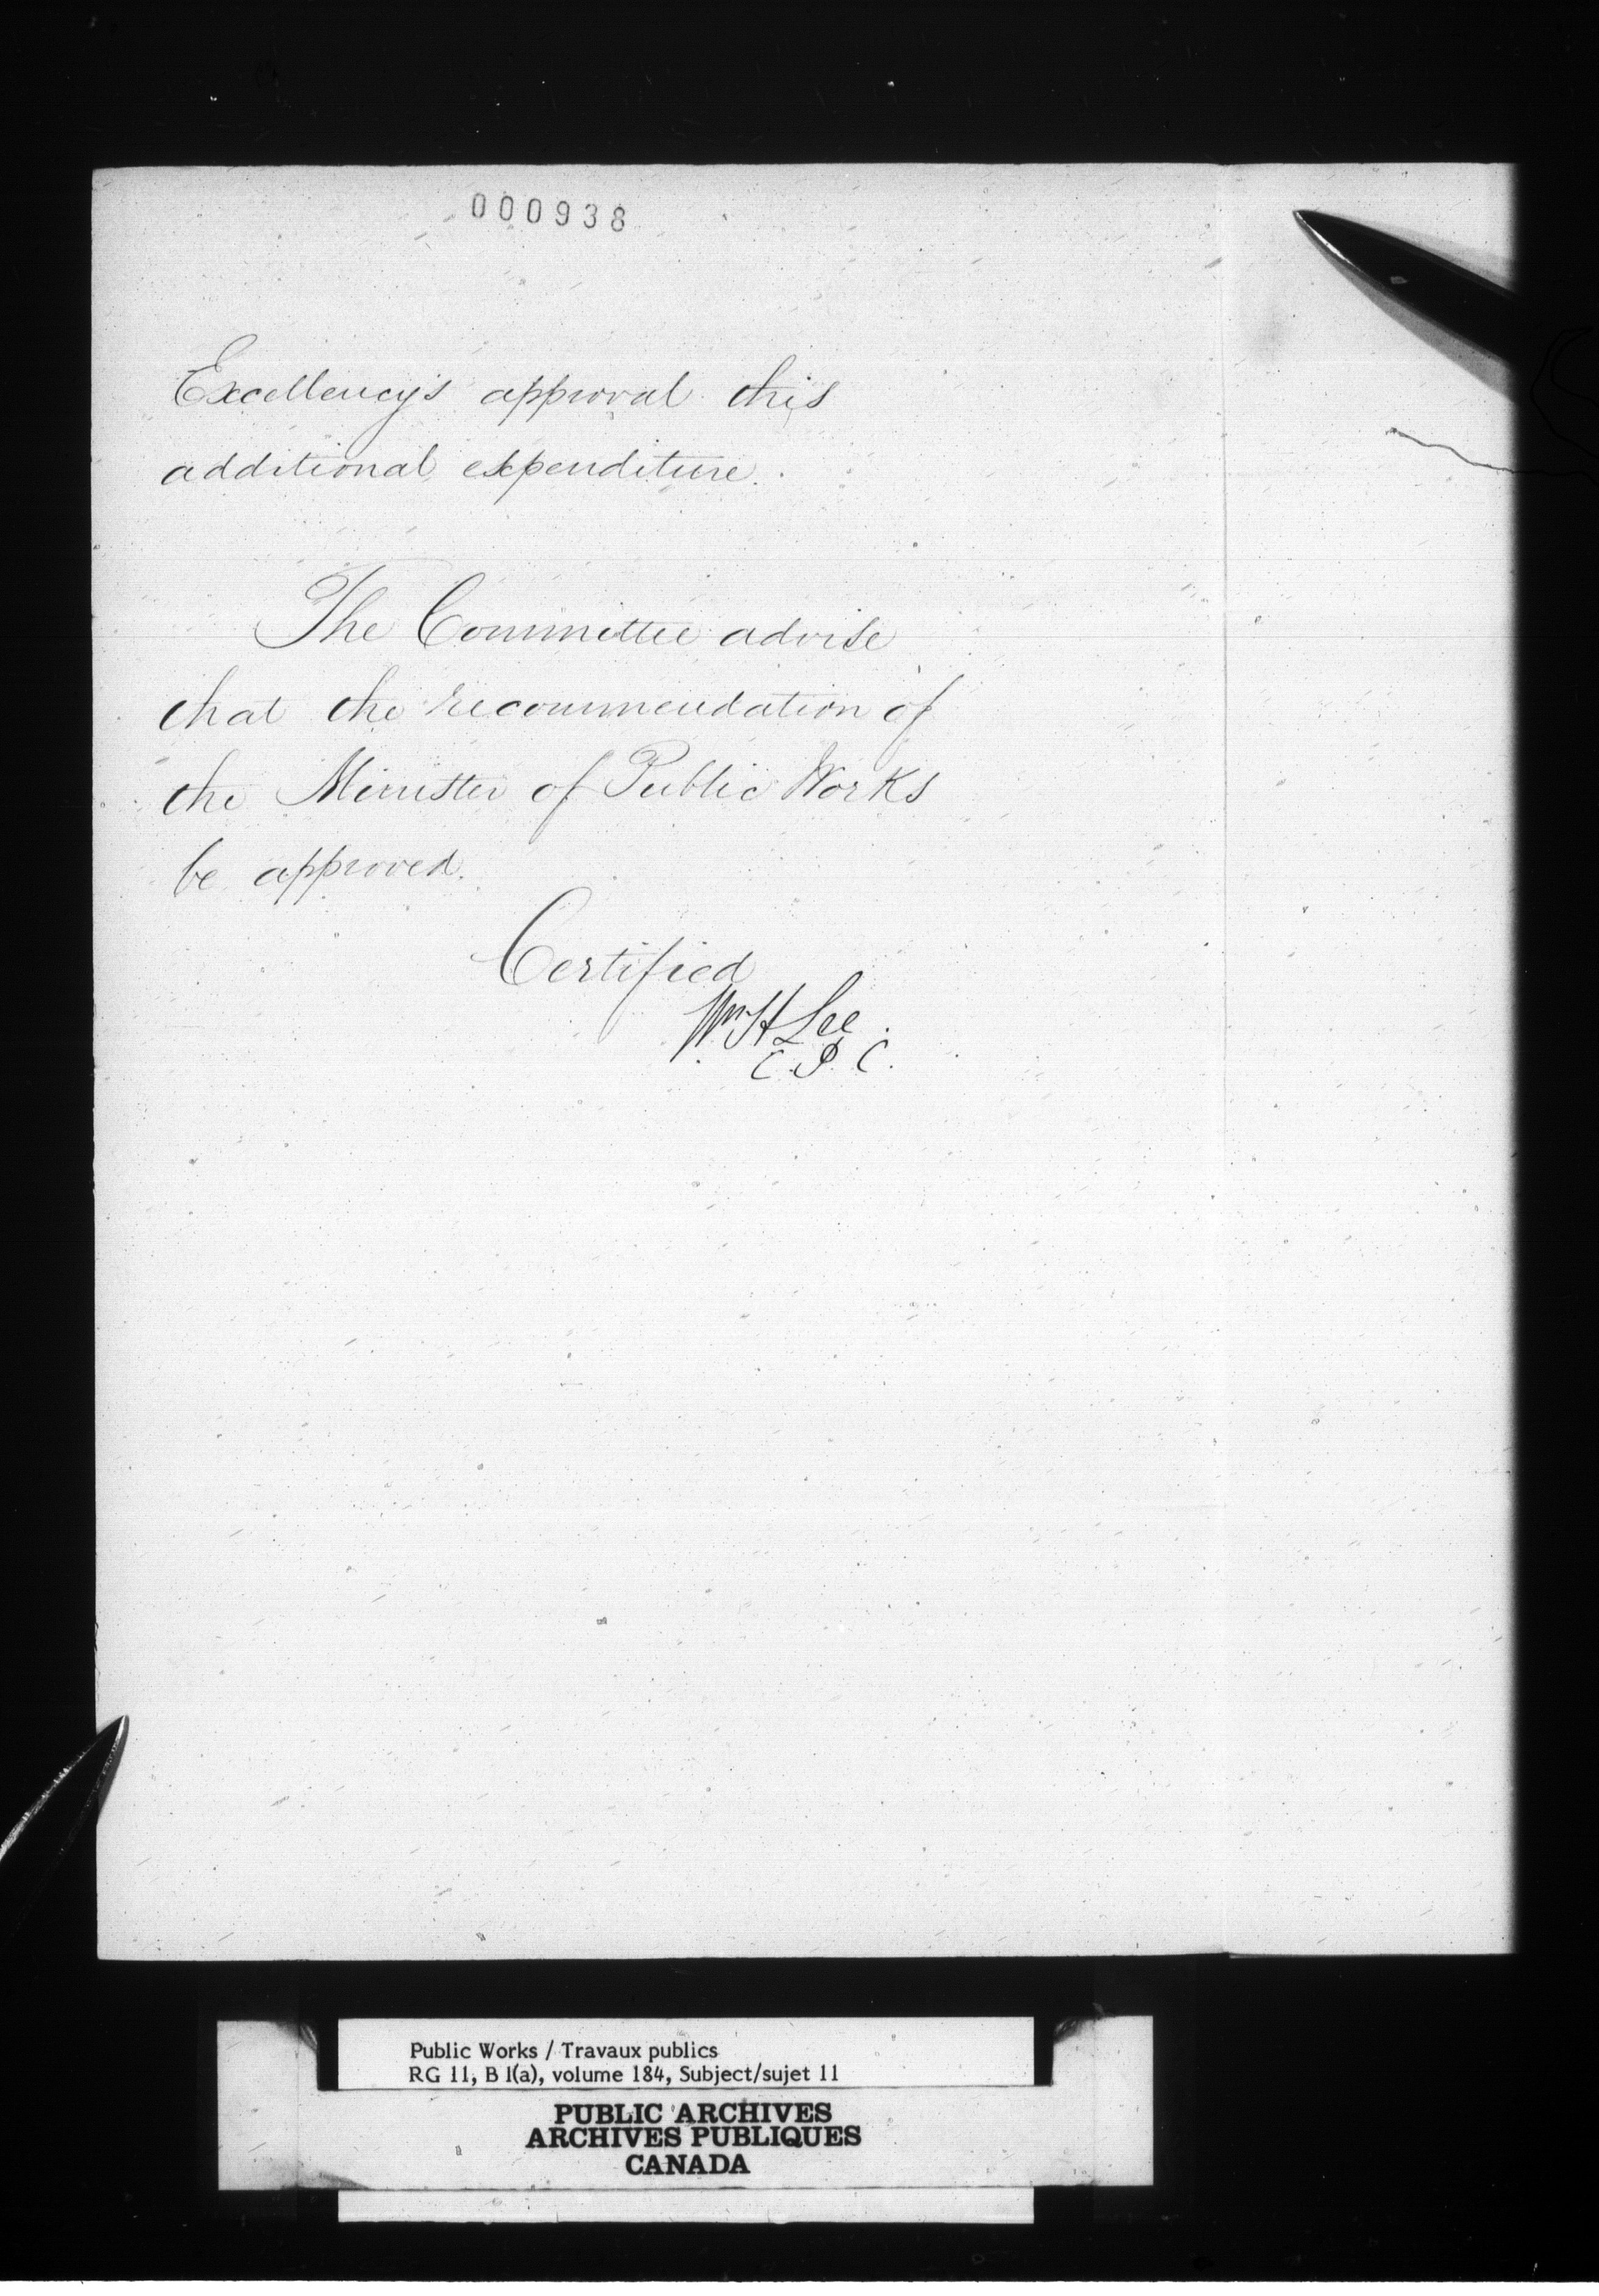 000938
Excellency's approval this
additional expenditure.
The Committee advise
that the recommendation of
the Minister of Public Works
be approved.
Certified
Wm H Lee
C. P. C.
Public Works / Travaux publics
RG 11, B 1(a), volume 184, Subject/sujet 11
PUBLIC ARCHIVES
ARCHIVES PUBLIQUES
CANADA